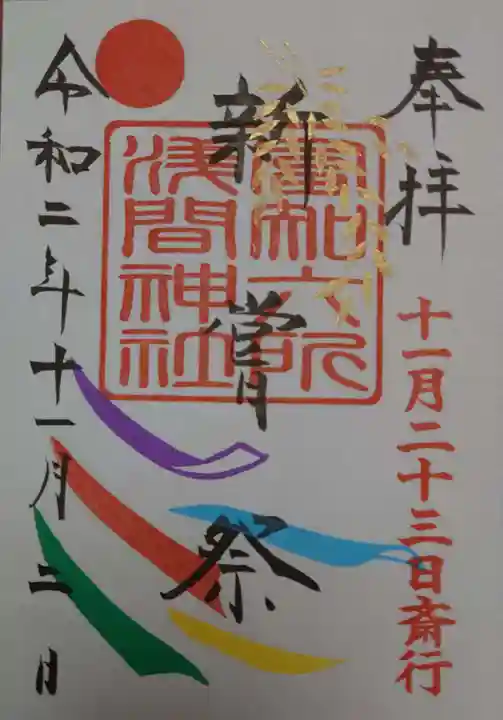 奉拝
十一月二十三日斎行
新嘗祭
富知六所
浅間神社
令和二年十一月二日